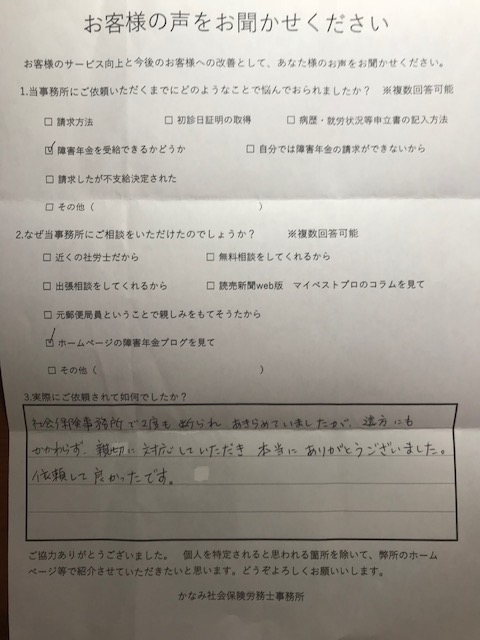 お客様の声をお聞かせください
お客様のサービス向上と今後のお客様への改善として、あなた様のお声をお聞かせください。
1.当事務所にご依頼いただくまでにどのようなことで悩んでおられましたか？ ※複数回答可能
□ 請求方法 □ 初診日証明の取得 □ 病歴・就労状況等申立書の記入方法
☑ 障害年金を受給できるかどうか □ 自分では障害年金の請求ができないから
□ 請求したが不支給決定された
□ その他（ ）
2.なぜ当事務所にご相談をいただけたのでしょうか？ ※複数回答可能
□ 近くの社労士だから □ 無料相談をしてくれるから
□ 出張相談をしてくれるから □ 読売新聞web版 マイベストプロのコラムを見て
□ 元郵便局員ということで親しみをもてそうだから
☑ ホームページの障害年金ブログを見て
□ その他（ ）
3.実際にご依頼されて如何でしたか？
社会保険事務所で2度も断られ あきらめていましたが、遠方にも
かかわらず、親切に対応していただき 本当にありがとうございました。
依頼して良かったです。
ご協力ありがとうございました。 個人を特定されると思われる箇所を除いて、弊所のホーム
ページ等で紹介させていただきたいと思います。どうぞよろしくお願いいします。
かなみ社会保険労務士事務所